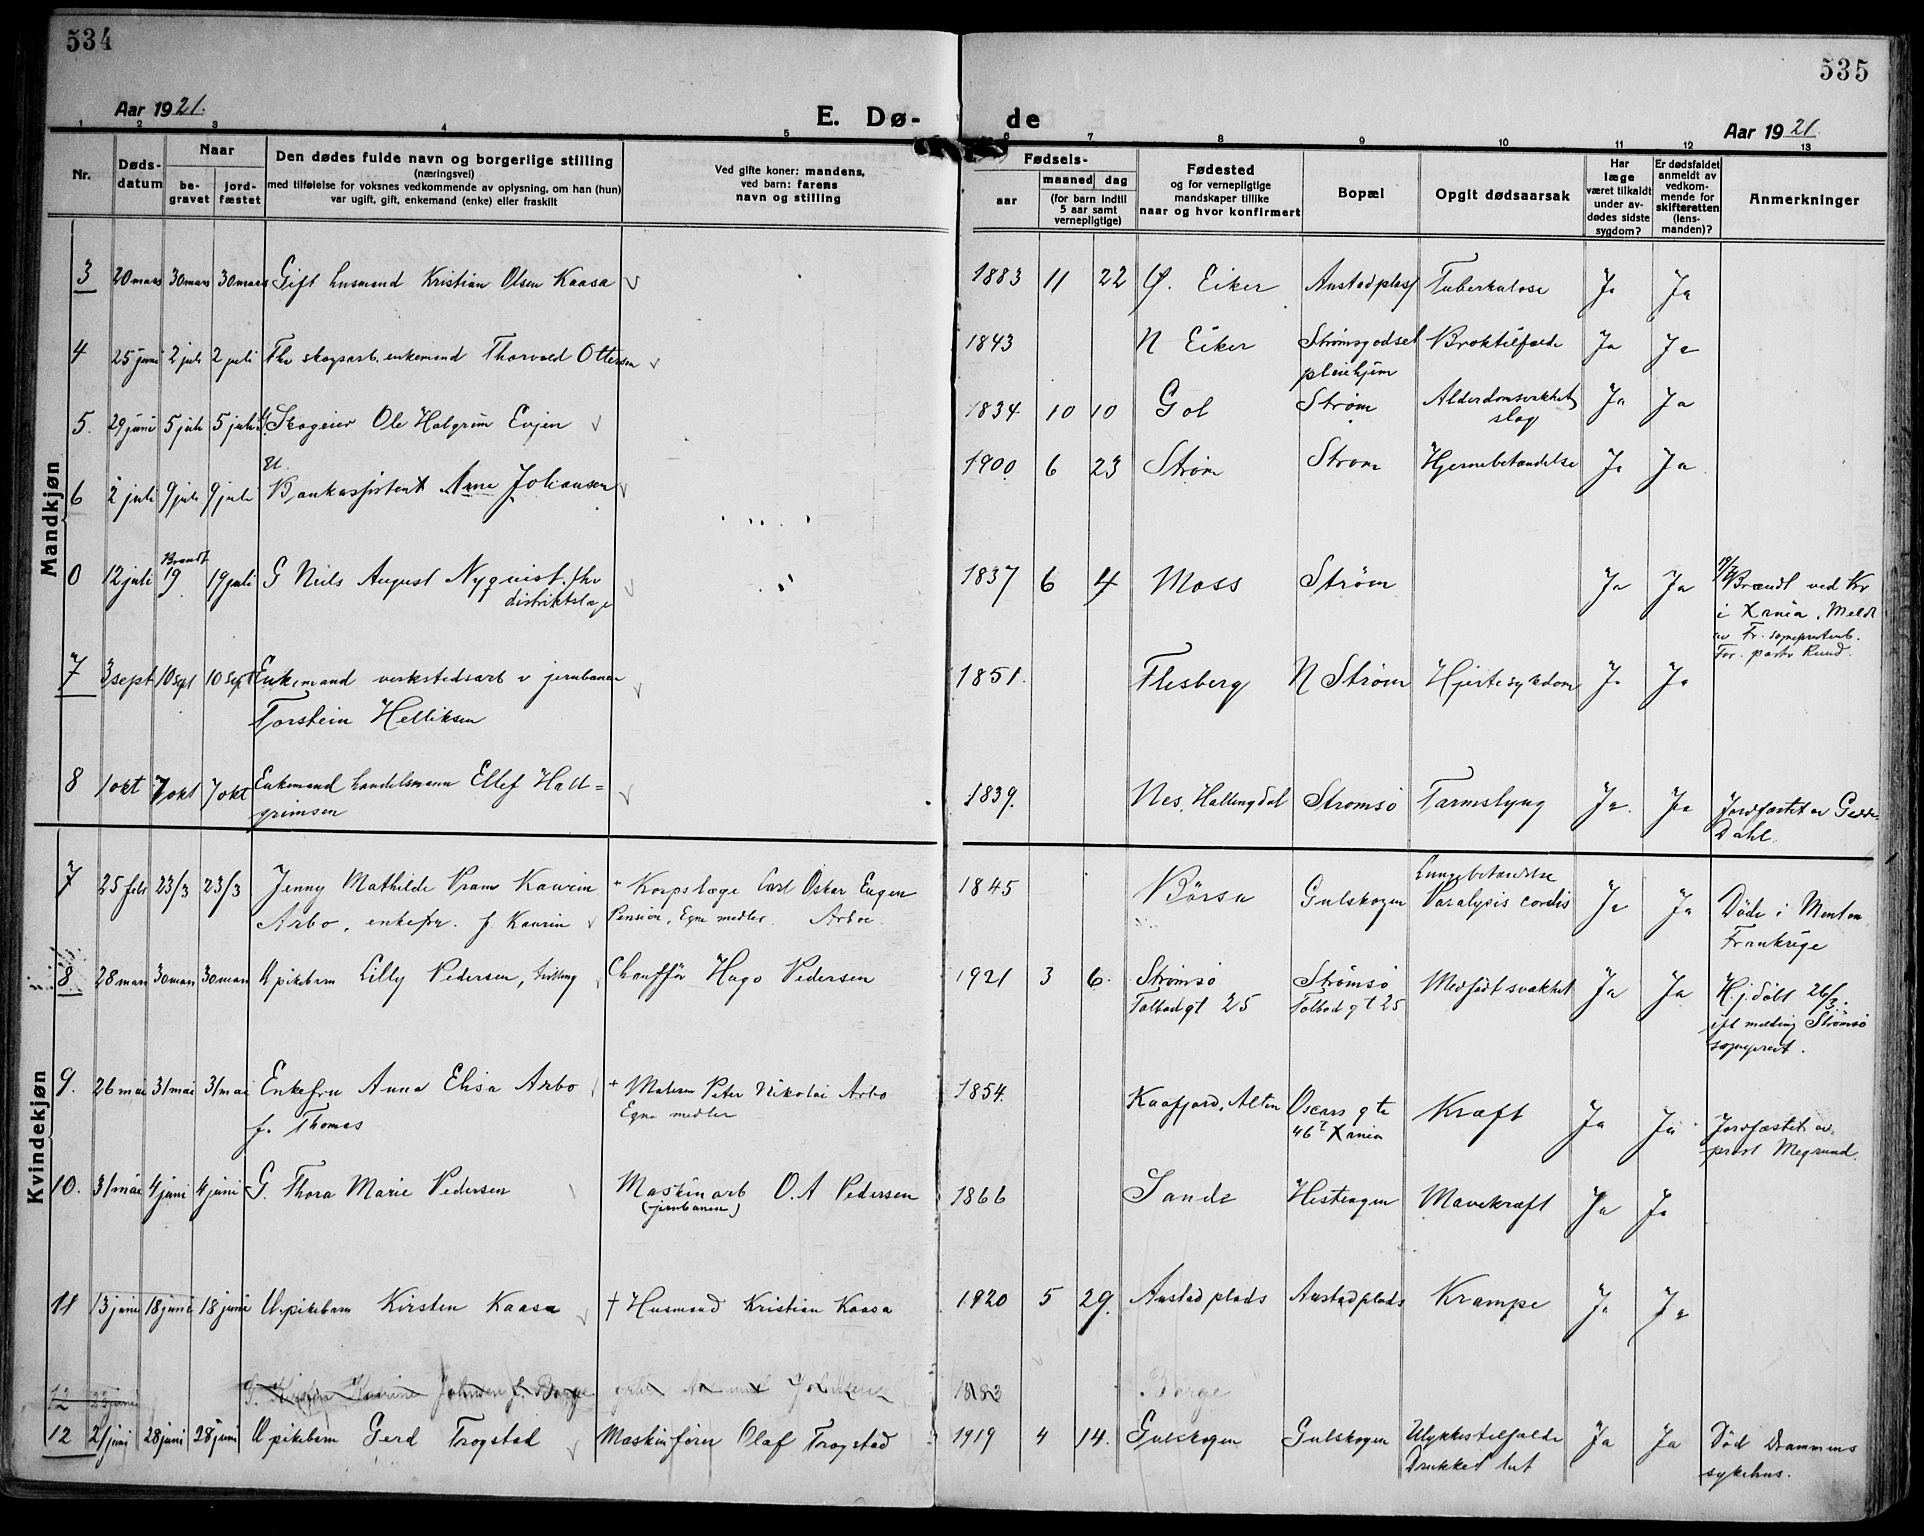 534
535
Aar 1921.
E. Dø-
de
Aar 1921.
1 2 3 4 5 6 7 8 9 10 11 12 13
Nr.
Døds-
datum
Naar
be-
gravet
jord-
fæstet
Den dødes fulde navn og borgerlige stilling
(næringsvei)
med tilføielse for voksnes vedkommende av oplysning, om han (hun)
var ugift, gift, enkemand (enke) eller fraskilt
Ved gifte koner: mandens,
ved barn: farens
navn og stilling
Fødsels-
aar
maaned
dag
(for barn indtil
5 aar samt
vernepligtige)
Fødested
og for vernepligtige
mandskaper tillike
naar og hvor konfirmert
Bopæl
Opgit dødsaarsak
Har
læge
været tilkaldt
under av-
dødes sidste
sygdom?
Er dødsfaldet
anmeldt av
vedkom-
mende for
skifteretten
(lens-
manden)?
Anmerkninger
Mandkjøn
3 20 mars 30 mars 30 mars Gift husmand Kristian Olsen Kaasa 1883 11 22 Ø. Eiker Austadplass Tuberkulose Ja Ja
4 25 juni 2 juli 2 juli Fhv skogsarb. enkemand Thorvald Ottersen 1843 N Eiker Strømsgodset Broktilfælde Ja Ja
pleiehjem
5. 29 juni 5 juli 5 juli Skogeier Ole Halgrim Evjen 1834 10 10 Gol Strøm Alderdomsvakhet Ja Ja
slag
U.
6 2 juli 9 juli 9 juli Bankassistent Arne Johansen 1900 6 23 Strøm Strøm Hjernebetændelse Ja Ja
Brændt
0 12 juli 19 19 juli G Niels August Nyqvist. fhv 1837 6 4 Moss Strøm Ja Ja 19/7 Brændt ved Kr
distriktslæge i Xania. Meldt
av Fr. sogneprestemb.
For. pastor Ruud.
7 3 sept 10 sept 10 sept Enkemand verkstedsarb v jernbanen 1851. Flesberg N Strøm Hjertesykdom Ja Ja
Torstein Helliksen
8 1 okt 7 okt 7 okt Enkemand handelsmann Ellef Hall= 1839. Nes, Hallingdal Strømsø Tarmslyng Ja. Ja Jordfæstet av Gedde-
grimsen Dahl.
Kvindekjøn
Lungebetændelse
7 25 feb 23/3 23/3 Jenny Mathilde Pram Kaurin + Korpslæge Carl Oskar Eugen 1845 Børsa Gulskogen Paralysis cordis Ja Ja Døde i Menton
Arbo, enkefr. f. Kaurin Pension, Egne medler Arboe Frankrige
8 28 mars 30 mars 30 mars U pikebarn Lilly Pedersen, tvilling Chauffør Hugo Pedersen 1921 3 6. Strømsø Strømsø Medfødt svakhet Ja Ja Hj. døbt 26/3.
Tolbodgt 25 Tolbodgt 25 ifl melding Strømsø
sogneprest.
9. 26 mai 31 mai 31 mai Enkefru Anna Elisa Arbo + Maleren Peter Nikolai Arbo 1854. Kaafjord, Alten Oscars gte Kræft Ja Ja Jordfæstet av
f. Thomas Egne medler 46 I Xania prost Megrund.
10. 31 mai 4 juni 4 juni G. Thora Marie Pedersen Maskinarb O. A Pedersen 1866 Sande Hestengen Mavekræft Ja Ja
(jernbanen)
11 13 juni 18 juni 18 juni U. pikebarn Kirsten Kaasa † Husmand Kristian Kaasa 1920 5 29. Austadplads Austadplads Krampe Ja Ja
12 23 juni G. Kirsten Johnsen f. Borge 1883 Borge
12 21 juni 28 juni 28 juni U pikebarn Gerd Trogstad Maskinfører Olaf Trogstad 1919 4 14. Gulskogen Gulskogen Ulykkestilfælde Ja Ja Død Drammens
Drukket lut sykehus.